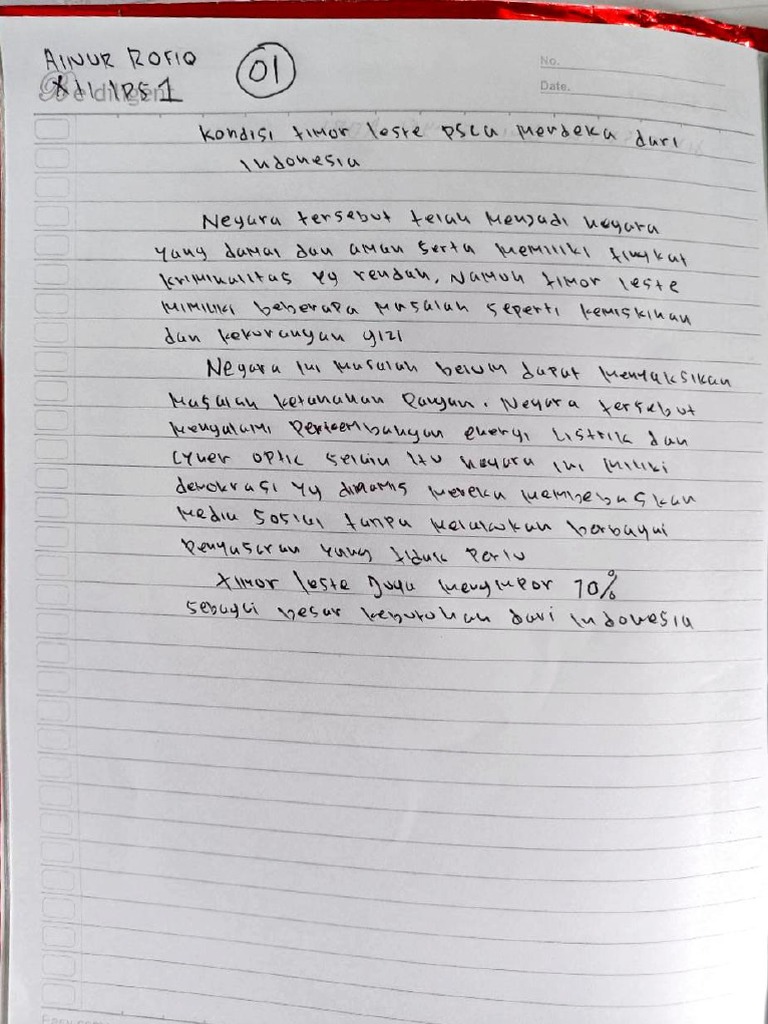 AINUR ROFIQ
XII IPS 1
01
No.
Date.
Be diligent
Kondisi timor leste psca merdeka dari
Indonesia
Negara tersebut telah menjadi negara
yang damai dan aman serta memiliki tingkat
kriminalitas yg rendah. Namun timor leste
mimiliki beberapa masalah seperti kemiskinan
dan kekurangan gizi
Negara ini masalah belum dapat menyaksikan
masalah ketahanan Pangan. Negara tersebut
mengalami Perkembangan energi Listrik dan
cyber optic selain itu negara ini miliki
demokrasi yg dinamis mereka membebaskan
media sosial tanpa melakukan berbagai
Penyasaran yang tidak Perlu
timor leste Juga mengimpor 70%
sebagai besar kebutuhan dari Indonesia